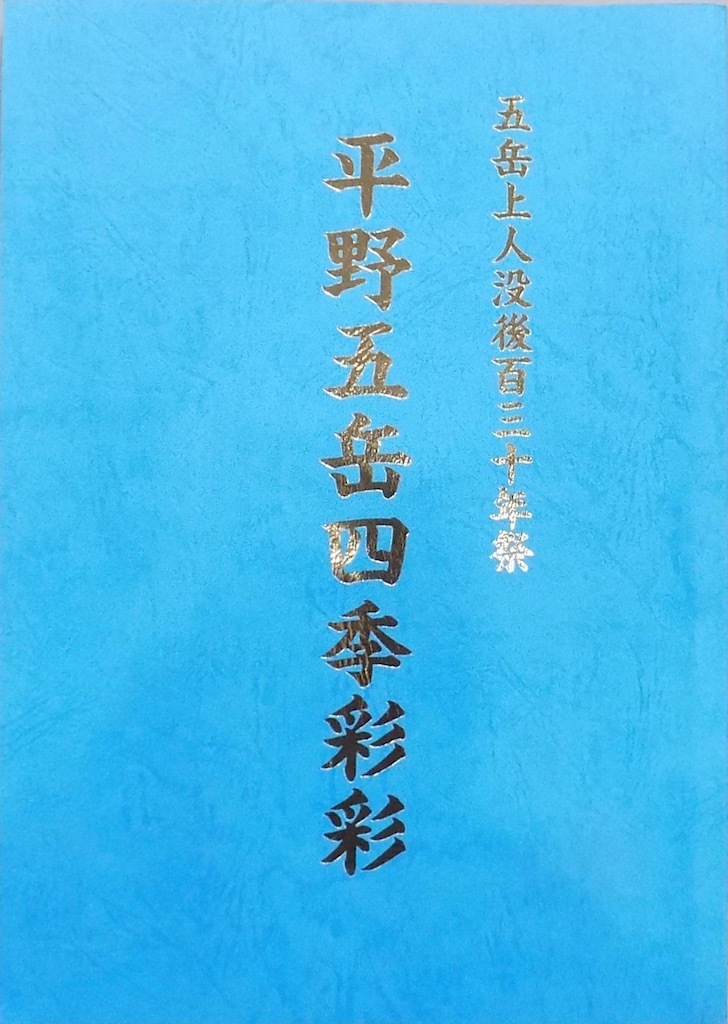 五岳上人没後百三十年祭
平野五岳四季彩彩